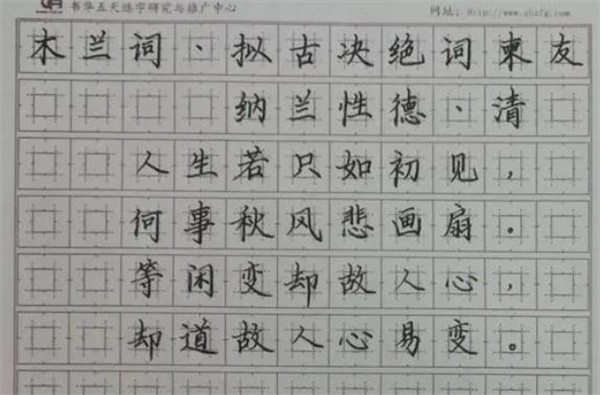 书华五天练字研究与推广中心
网址：Http://www.shzfg.com
木兰词、拟古决绝词柬友
纳兰性德、清
人生若只如初见，
何事秋风悲画扇。
等闲变却故人心，
却道故人心易变。